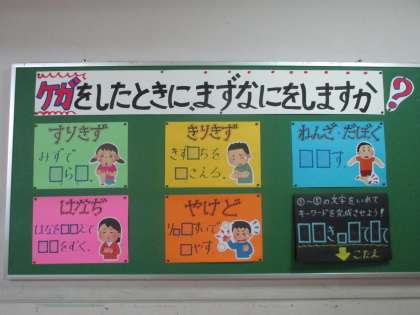 ケガをしたときに、まずなにをしますか?
すりきず
みずで
□ら□
きりきず
きず□ちを
□さえる。
ねんざ・だぼく
□□す
はなぢ
はなを□□んで
□□をずく。
やけど
□すいで
□やす
①〜⑤の文字をいれて
キーワードを完成させよう!
□□き。□て□て
こたえ